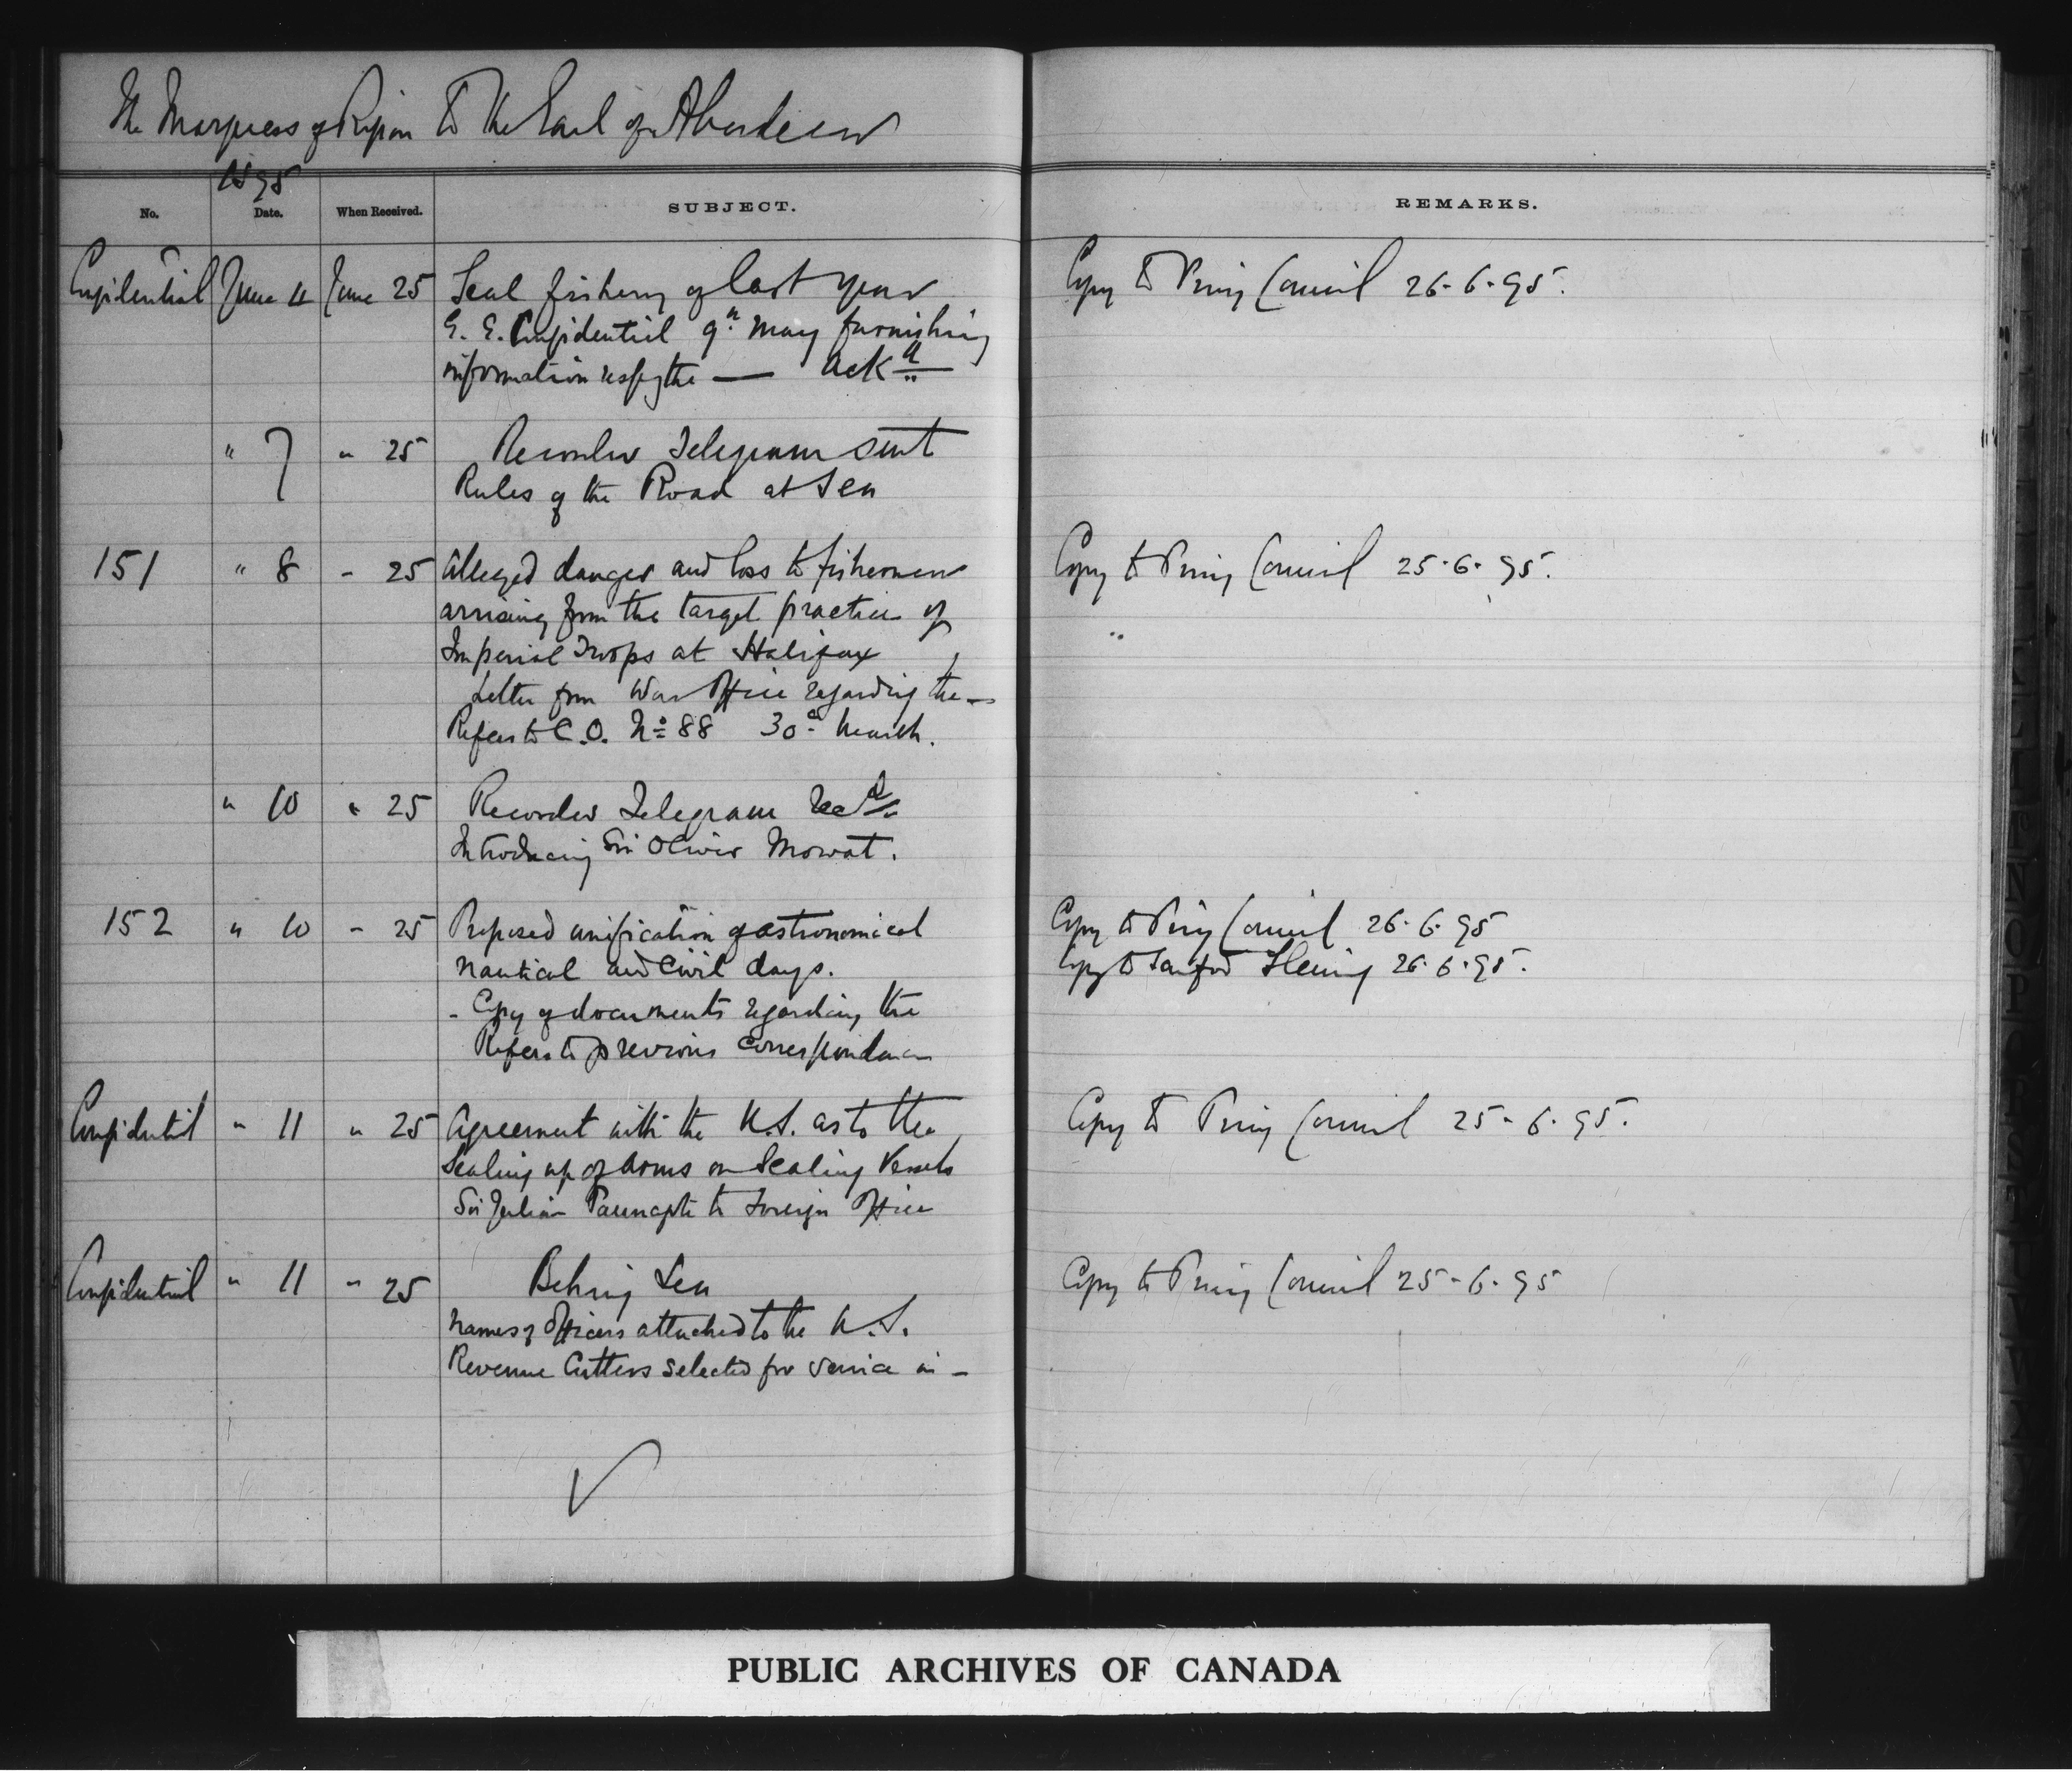 The Marquess of Ripon to the Earl of Aberdeen
1895
No. Date. When Received. SUBJECT. REMARKS.
Confidential June 11 June 25 Seal fishery of last year Copy to Privy Council 26-6-95.
G. G. Confidential 9th May furnishing
information respg the — Ackd
" 7 " 25 Recorder Telegram sent
Rules of the Road at Sea
151 " 8 - 25 Alleged danger and loss to fishermen Copy to Privy Council 25-6-95.
arrising from the target practice of
Imperial Troops at Halifax
Letter from War Office regarding the —
Refers to C.O. No 88 30th March.
" 10 " 25 Recorder Telegram recd
Introducing Sir Oliver Mowat.
152 " 10 - 25 Proposed unification of astronomical Copy to Privy Council 26-6-95
nautical and Civil days. Copy to Sanford Fleming 26-6-95.
- Copy of documents regarding the
Refers to previous correspondence
Confidential " 11 " 25 Agreement with the U.S. as to the Copy to Privy Council 25-6-95.
Sealing up of Arms on Sealing Vessels
Sir Julian Pauncefote to Foreign Office
Confidential " 11 " 25 Behring Sea Copy to Privy Council 25-6-95
Names of Officers attached to the U.S.
Revenue Cutters selected for service in —
PUBLIC ARCHIVES OF CANADA